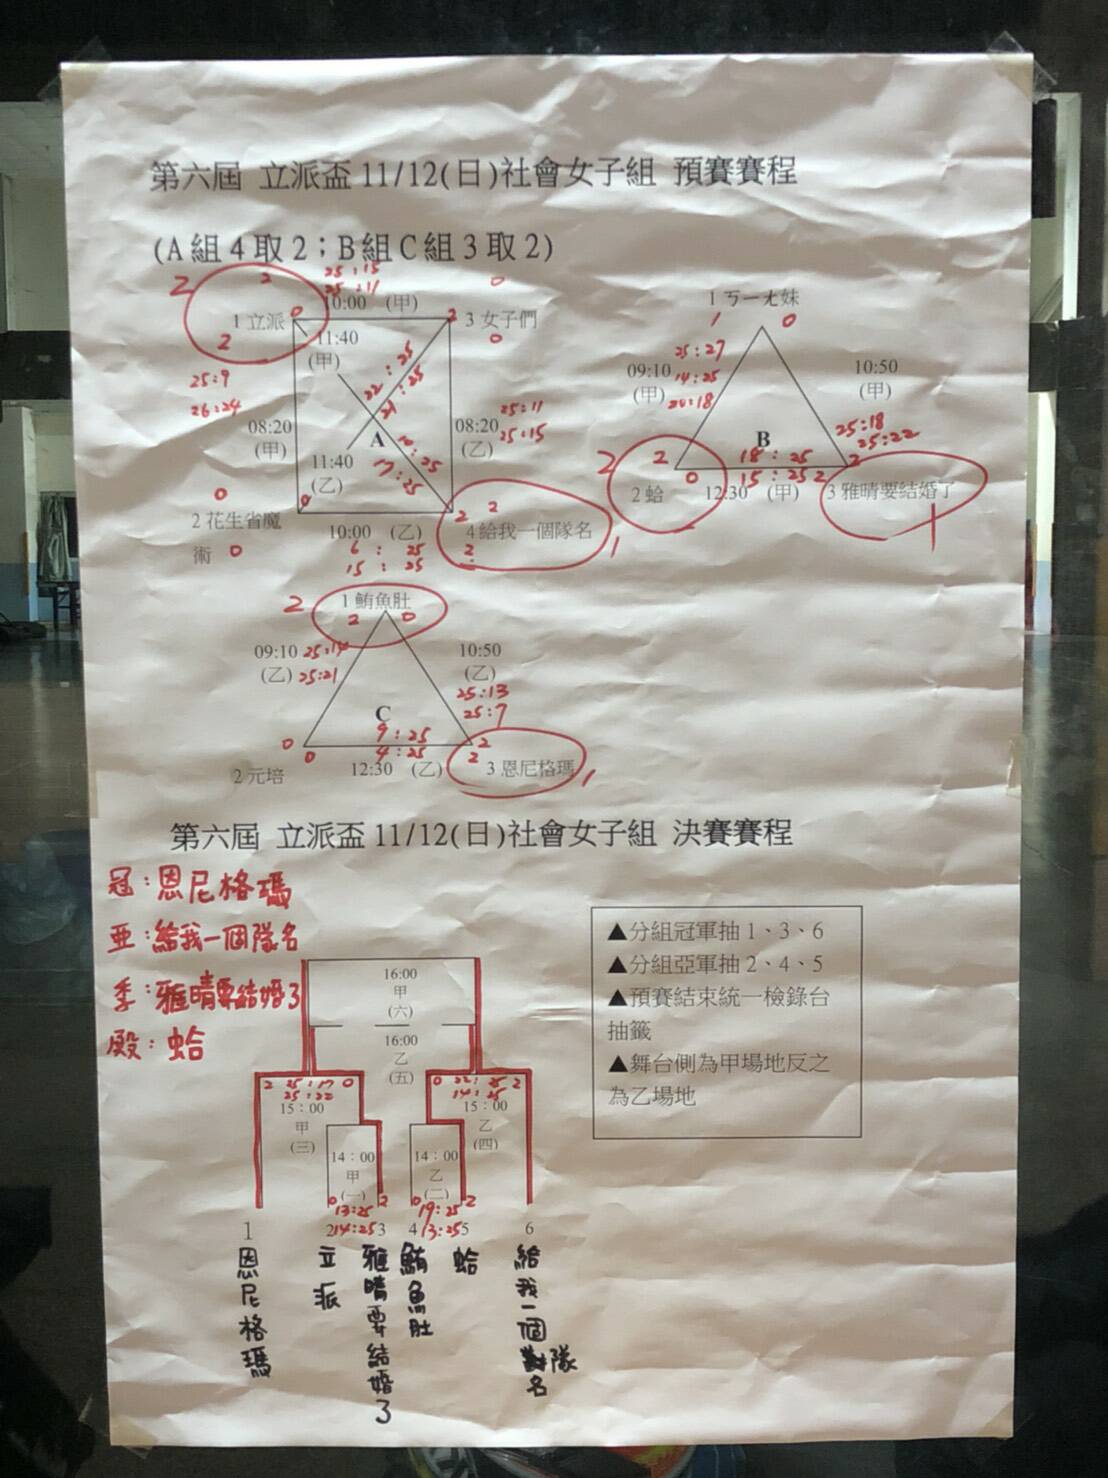 第六屆 立派盃 11/12(日)社會女子組 預賽賽程
(A組4取2；B組C組3取2)
2
2
25:15
25:11
0
10:00 (甲)
1 立派
0
2
3 女子們
2
0
11:40
(甲)
25:9
26:24
22:25
21:25
08:20
(甲)
A
08:20
(乙)
25:11
25:15
11:40
(乙)
10:25
17:25
0
0
2 花生省魔
術
0
10:00 (乙)
6 : 25
15 : 25
2
2
4 給我一個隊名
2
1
1 ㄎㄧㄤ妹
1
0
09:10
(甲)
25:27
14:25
20:18
10:50
(甲)
25:18
25:22
B
2
2
0
2 蛤
18:25
15:25
12:30 (甲)
2
2
3 雅晴要結婚了
1
2
1 鮪魚肚
2
0
09:10
(乙)
25:14
25:21
10:50
(乙)
25:13
25:7
C
9:25
4:25
0
0
2 元培
12:30 (乙)
2
2
3 恩尼格瑪
1
第六屆 立派盃 11/12(日)社會女子組 決賽賽程
冠:恩尼格瑪
亞:給我一個隊名
季:雅晴要結婚了
殿:蛤
▲分組冠軍抽1、3、6
▲分組亞軍抽2、4、5
▲預賽結束統一檢錄台
抽籤
▲舞台側為甲場地反之
為乙場地
16:00
甲
(六)
16:00
乙
(五)
2 25:17 0
25:22
15:00
甲
(三)
0 22:25 2
14:25
15:00
乙
(四)
14:00
甲
(一)
0 2
13:25
14:25
14:00
乙
(二)
0 2
19:25
13:25
1 2 3 4 5 6
恩尼格瑪
立派
雅晴要結婚了
鮪魚肚
蛤
給我一個隊名